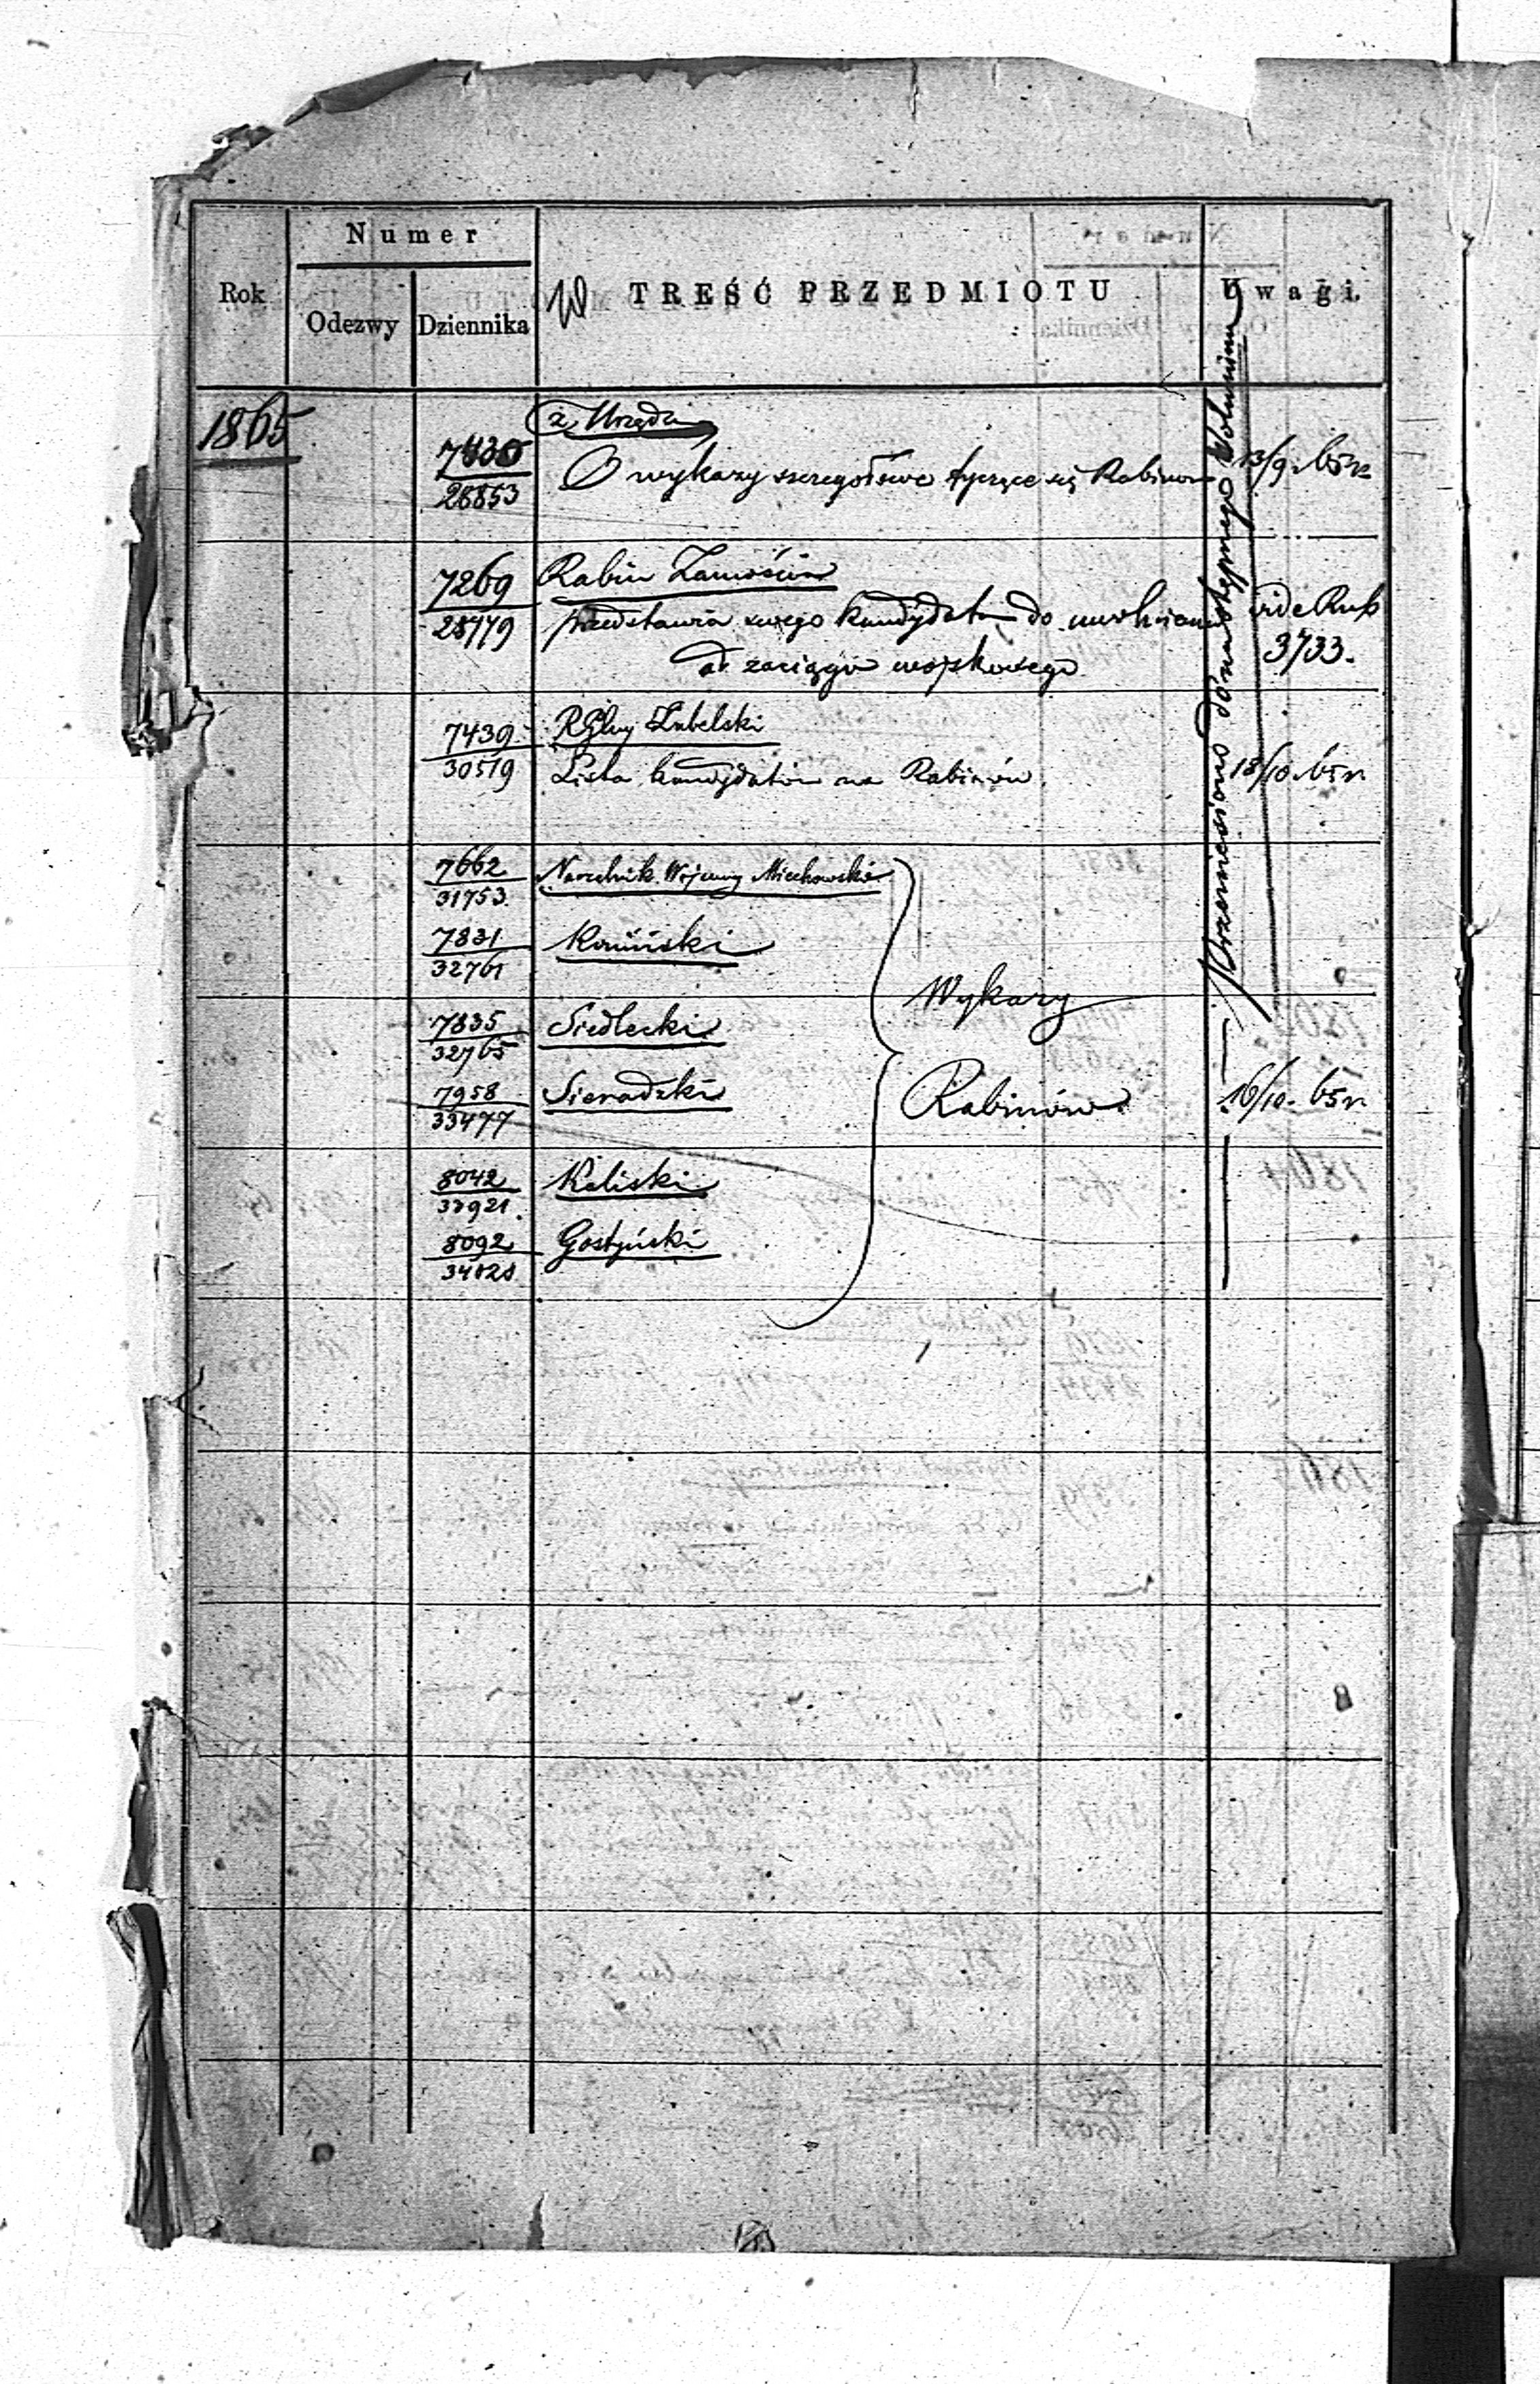 Numer
Rok
Odezwy
Dziennika
TREŚĆ PRZEDMIOTU
Uwagi.
1865
z Urzędu
7430
28853
O wykazy szczegółowe tyczące się Rabinów
13/9. 65 r.
7269
28779
Rabin Zamościa
przedstawia swego kandydata do uwolnienia
vide Rub
od zaciągu wojskowego
3733.
7439
30519
RGlny Lubelski
Lista kandydatów na Rabinów
18/10. 65 r.
7662
31753
Naczelnik Wojenny Miechowski
7831
32761
Koniński
Wykazy
7835
32765
Siedlecki
7958
33477
Sieradzki
Rabinów
16/10. 65 r.
8042
33921
Kaliski
8092
Gostyński
Przeniesiono do następnego Voluminu